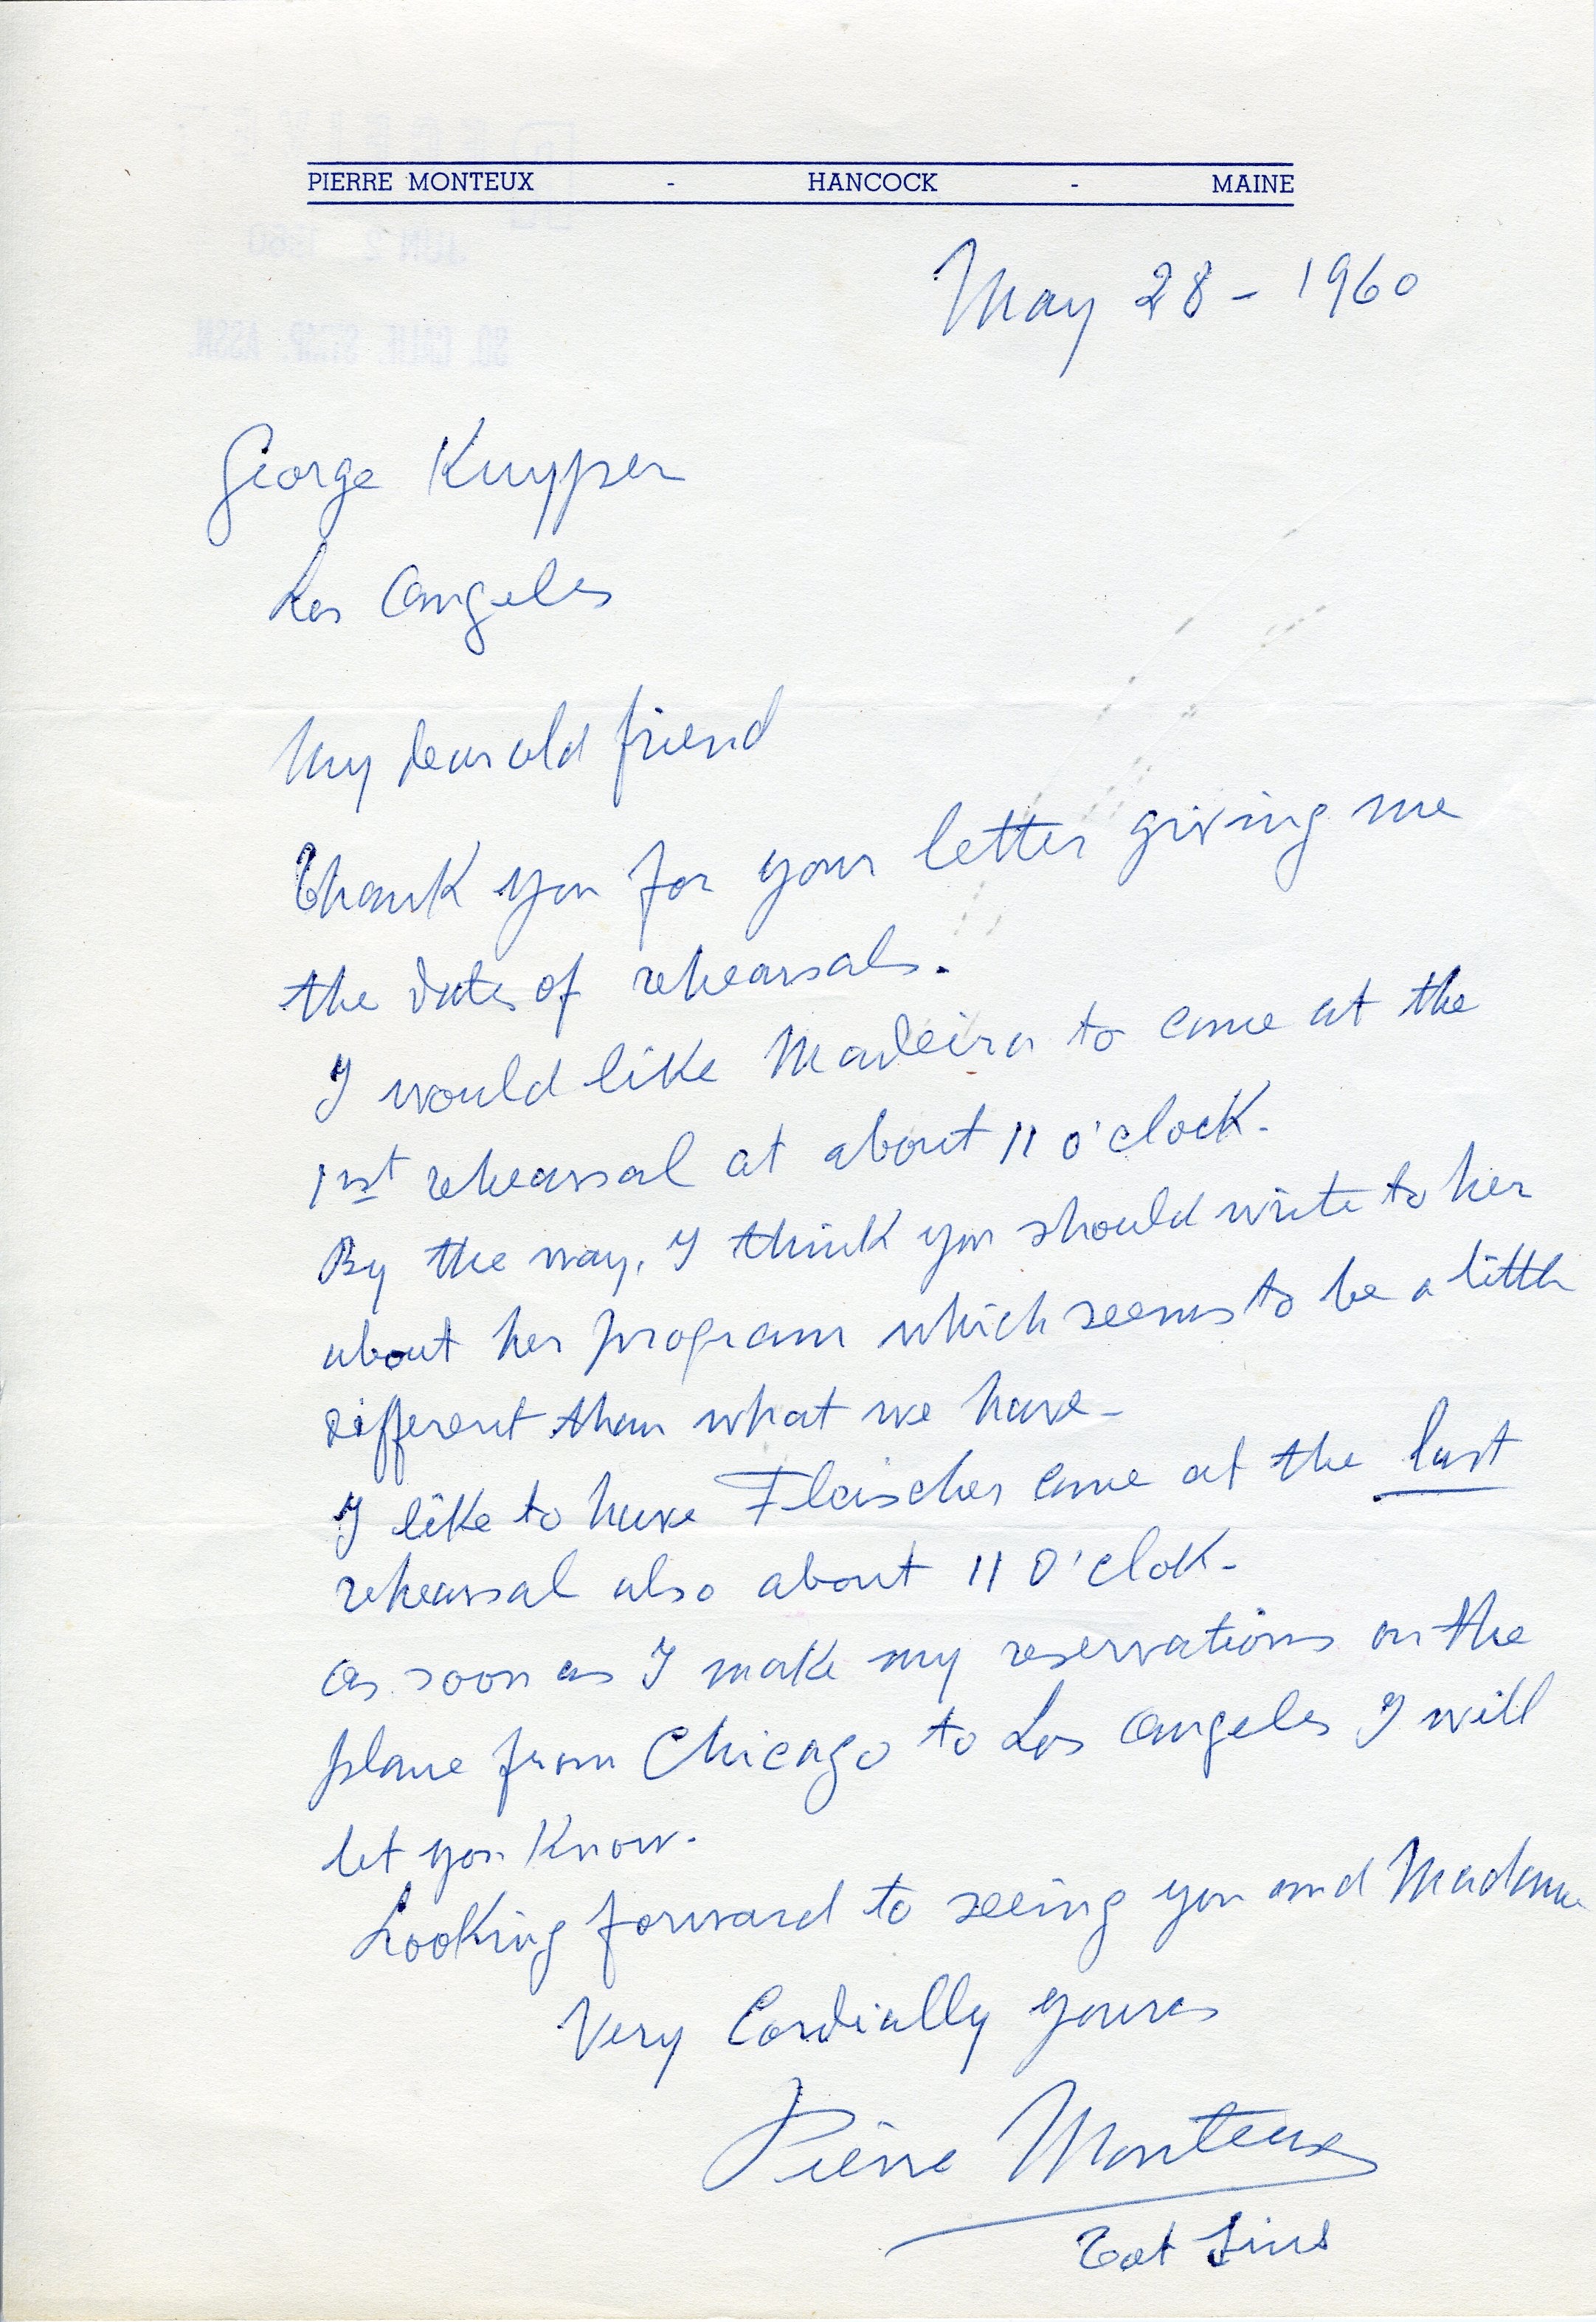 PIERRE MONTEUX - HANCOCK - MAINE
May 28 - 1960
George Kuyper
Los Angeles
My dear old friend
Thank you for your letter giving me
the dates of rehearsals.
I would like Madeira to come at the
1rst rehearsal at about 11 o'clock.
By the way, I think you should write to her
about her program which seems to be a little
different than what we have -
I like to have Fleischer come at the last
rehearsal also about 11 O'clok -
As soon as I make my reservations on the
plane from Chicago to Los Angeles I will
let you Know.
Looking forward to seeing you and Madame
Very Cordially yours
Pierre Monteux